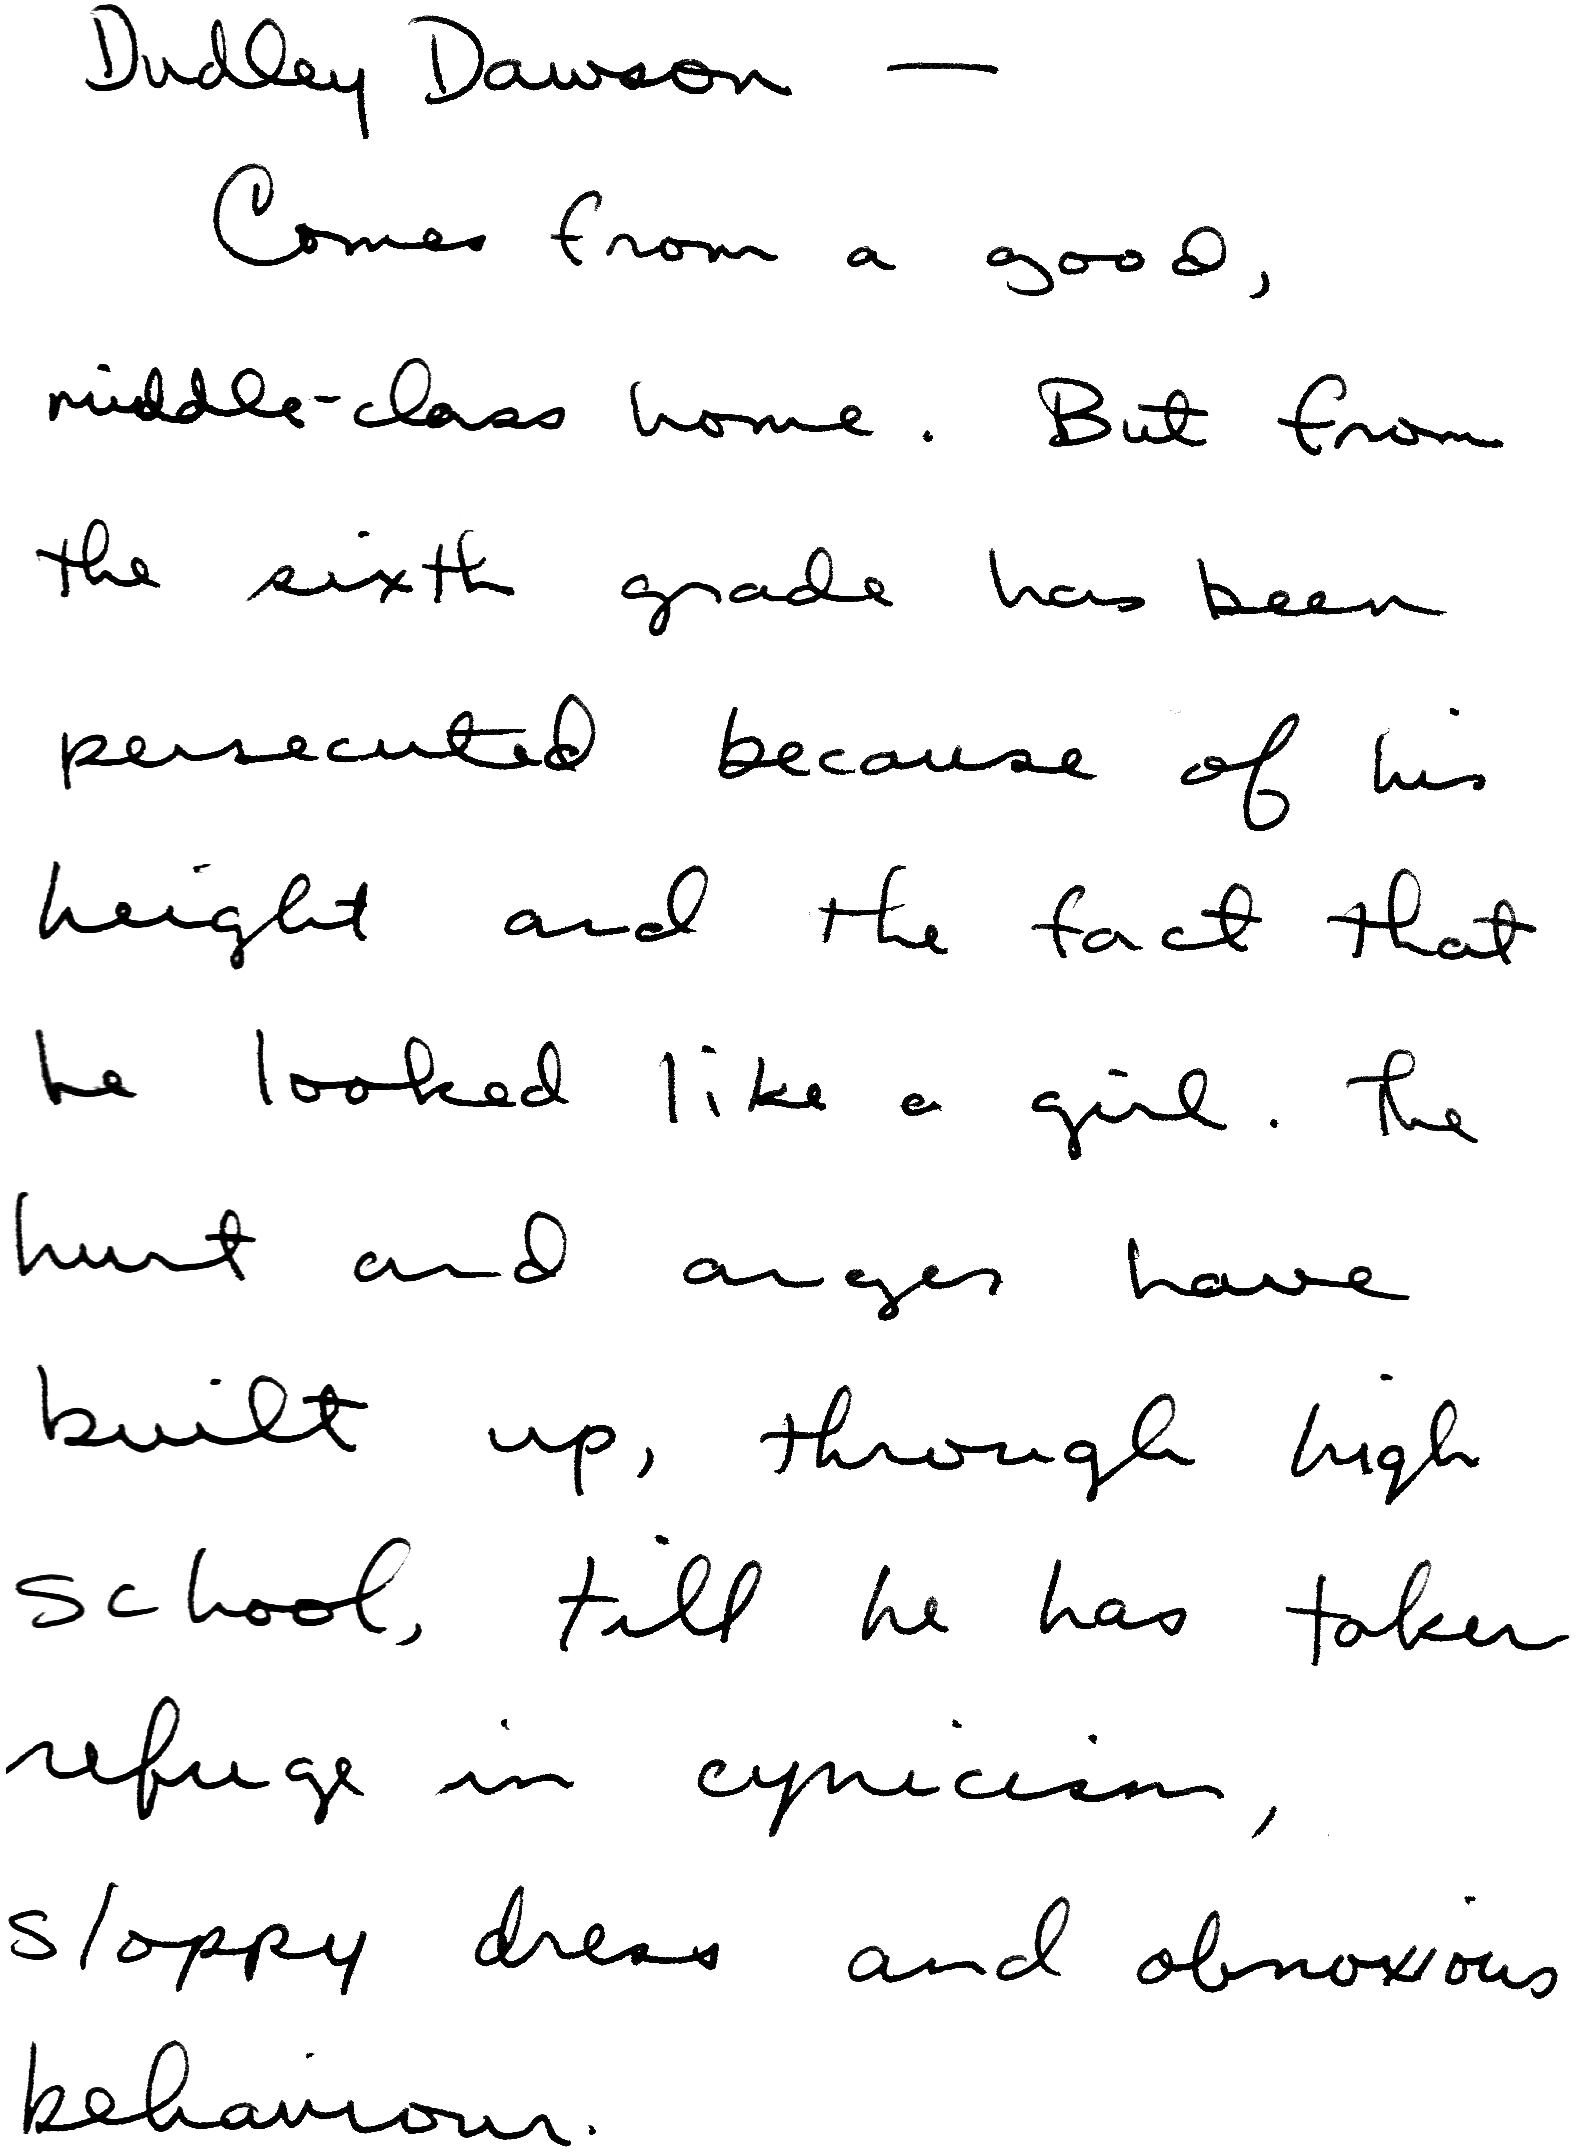 Dudley Dawson —
Comes from a good,
middle-class home. But from
the sixth grade has been
persecuted because of his
height and the fact that
he looked like a girl. The
hurt and anger have
built up, through high
school, till he has taken
refuge in cynicism,
sloppy dress and obnoxious
behaviour.